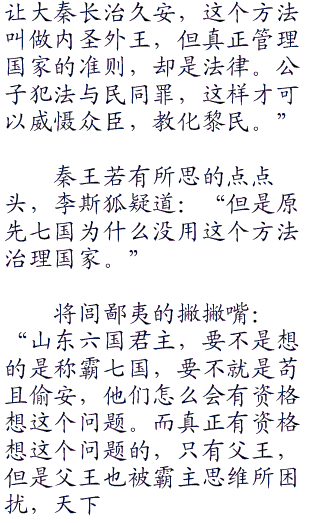 让大秦长治久安，这个方法
叫做内圣外王，但真正管理
国家的准则，却是法律。公
子犯法与民同罪，这样才可
以威慑众臣，教化黎民。”
秦王若有所思的点点
头，李斯狐疑道：“但是原
先七国为什么没用这个方法
治理国家。”
将闾鄙夷的撇撇嘴：
“山东六国君主，要不是想
的是称霸七国，要不就是苟
且偷安，他们怎么会有资格
想这个问题。而真正有资格
想这个问题的，只有父王，
但是父王也被霸主思维所困
扰，天下